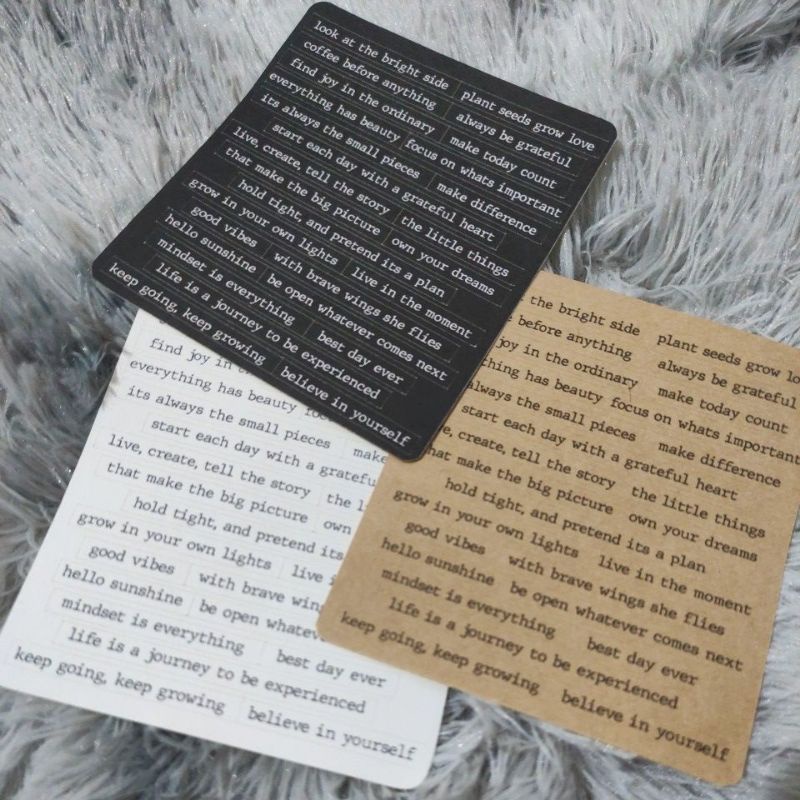 look at the bright side plant seeds grow love
coffee before anything always be grateful
find joy in the ordinary make today count
everything has beauty focus on whats important
its always the small pieces make difference
start each day with a grateful heart
live, create, tell the story the little things
that make the big picture own your dreams
hold tight, and pretend its a plan
grow in your own lights live in the moment
good vibes with brave wings she flies
hello sunshine be open whatever comes next
mindset is everything best day ever
life is a journey to be experienced
keep going, keep growing believe in yourself
find joy in
everything has beauty
its always the small pieces make
start each day with a
live, create, tell the story the
that make the big picture own
hold tight, and pretend its
grow in your own lights live
good vibes with brave
hello sunshine be open
mindset is everything best day ever
life is a journey to be experienced
keep going, keep growing believe in yourself
the bright side plant seeds grow
before anything always be grateful
joy in the ordinary make today count
has beauty focus on whats important
always the small pieces make difference
start each day with a grateful heart
create, tell the story the little things
that make the big picture own your dreams
hold tight, and pretend its a plan
grow in your own lights live in the moment
good vibes with brave wings she flies
hello sunshine be open whatever comes next
mindset is everything best day ever
life is a journey to be experienced
keep going, keep growing believe in yourself